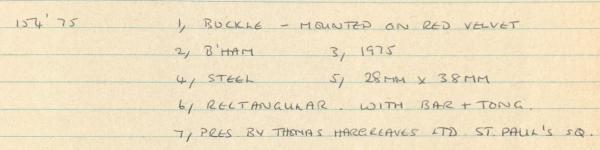 154' 75 1, BUCKLE - MOUNTED ON RED VELVET
2, B'HAM 3, 1975
4, STEEL 5, 28MM X 38MM
6, RECTANGULAR. WITH BAR + TONG.
7, PRES BY THOMAS HARGREAVES LTD. ST. PAUL'S SQ.